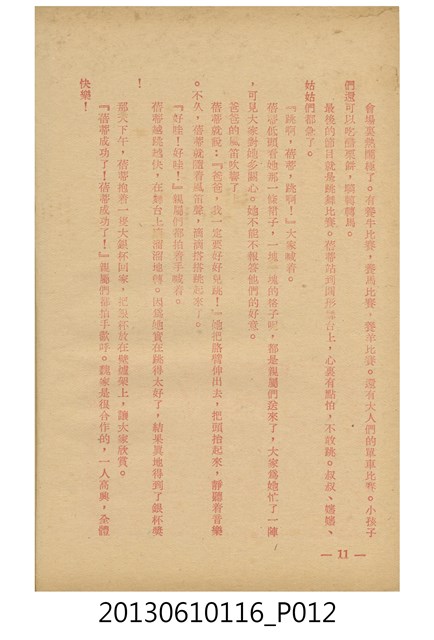 會場裏熱鬧極了。有賽牛比賽，賽馬比賽，賽羊比賽。還有大人們的單車比賽。小孩子
們還可以吃糖果餅，騎騎轉馬。
最後的節目就是跳舞比賽。蓓蒂站到圓形舞台上，心裏有點怕，不敢跳。叔叔、嬸嬸、
姑姑們都急了。
『跳啊，蓓蒂，跳啊！』大家喊着。
蓓蒂低頭看她那一條裙子，一塊一塊的格子呢，都是親屬們送來了，大家爲她忙了一陣
，可見大家對她多關心。她不能不報答他們的好意。
爸爸的風笛吹響了
蓓蒂就說：『爸爸，我一定要好好兒跳！』她把胳臂伸出去，把頭抬起來，靜聽着音樂
。不久，蓓蒂就隨着風笛聲，滴滴搭搭跳起來了。
『好哇！好哇！』親屬們都拍着手喊着。
蓓蒂越跳越快，在舞台上滴溜溜地轉。因爲她實在跳得太好了，結果眞地得到了銀杯獎
！
那天下午，蓓蒂抱着一隻大銀杯回家，把銀杯放在壁爐架上，讓大家欣賞。
『蓓蒂成功了！蓓蒂成功了！』親屬們都拍手歡呼。魏家是很合作的，一人高興，全體
快樂！
— 11 —
20130610116_P012